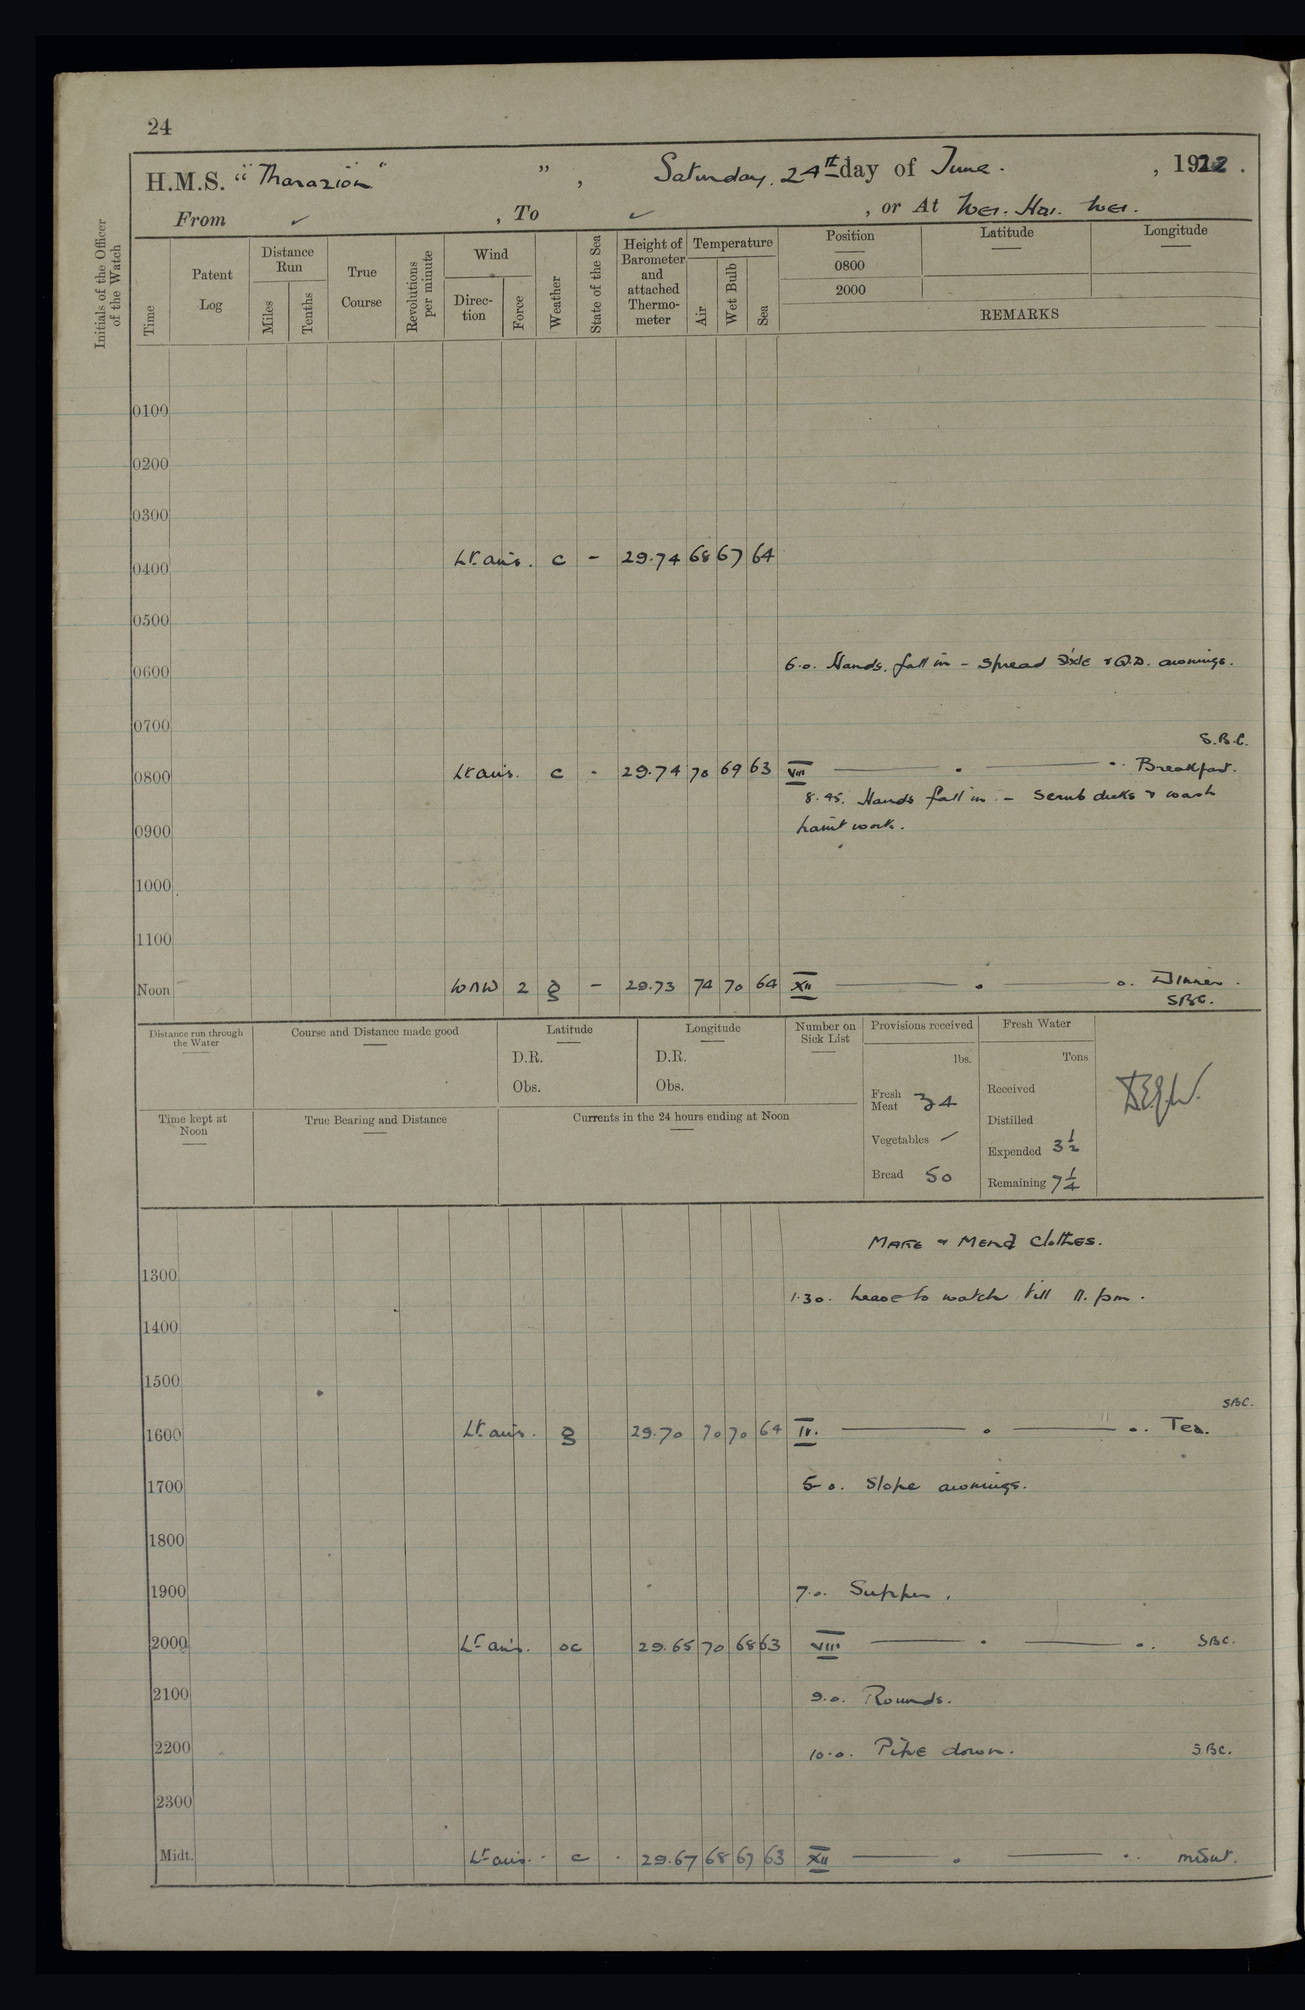 24
H.M.S. " " , Saturday. 24th day of June. , 1922.
From ✓ , To ✓ , or At Wei. Hai. Wei.
Initials of the Officer of the Watch
Time
Patent Log
Distance Run
Miles
Tenths
True Course
Revolutions per minute
Wind
Direc-tion
Force
Weather
State of the Sea
Height of Barometer and attached Thermo-meter
Temperature
Air
Wet Bulb
Sea
Position
Latitude
Longitude
0800
2000
REMARKS
0100
0200
0300
0400 Lt. airs. c - 29.74 68 67 64
0500
0600 6.0. Hands fall in - Spread & Q.D. awnings.
0700
S.B.C.
0800 Lt airs. c - 29.74 70 69 63 VIII Breakfast.
8.45. Hands fall in - Scrub decks & wash
paint work.
0900
1000
1100
Noon WNW 2 g - 29.73 74 70 64 XII Dinner.
SBC.
Distance run through the Water
Course and Distance made good
Latitude
D.R.
Obs.
Longitude
D.R.
Obs.
Number on Sick List
Provisions received
lbs.
Fresh Meat 34
Vegetables ✓
Bread 50
Fresh Water
Tons
Received
Distilled
Expended 3 1/2
Remaining 7 1/4
Time kept at Noon
True Bearing and Distance
Currents in the 24 hours ending at Noon
Make & Mend Clothes.
1300
1.30. Leave to watch till 11. pm.
1400
1500
SBC.
1600 Lt. airs. g 29.70 70 70 64 IV. Tea.
1700 5.0. Slope awnings.
1800
1900 7.0. Supper.
2000 Lt airs. oc 29.65 70 68 63 VIII SBC.
2100 9.0. Rounds.
2200 10.0. Pipe down. S.BC.
2300
Midt. Lt airs. c . 29.67 68 67 63 XII